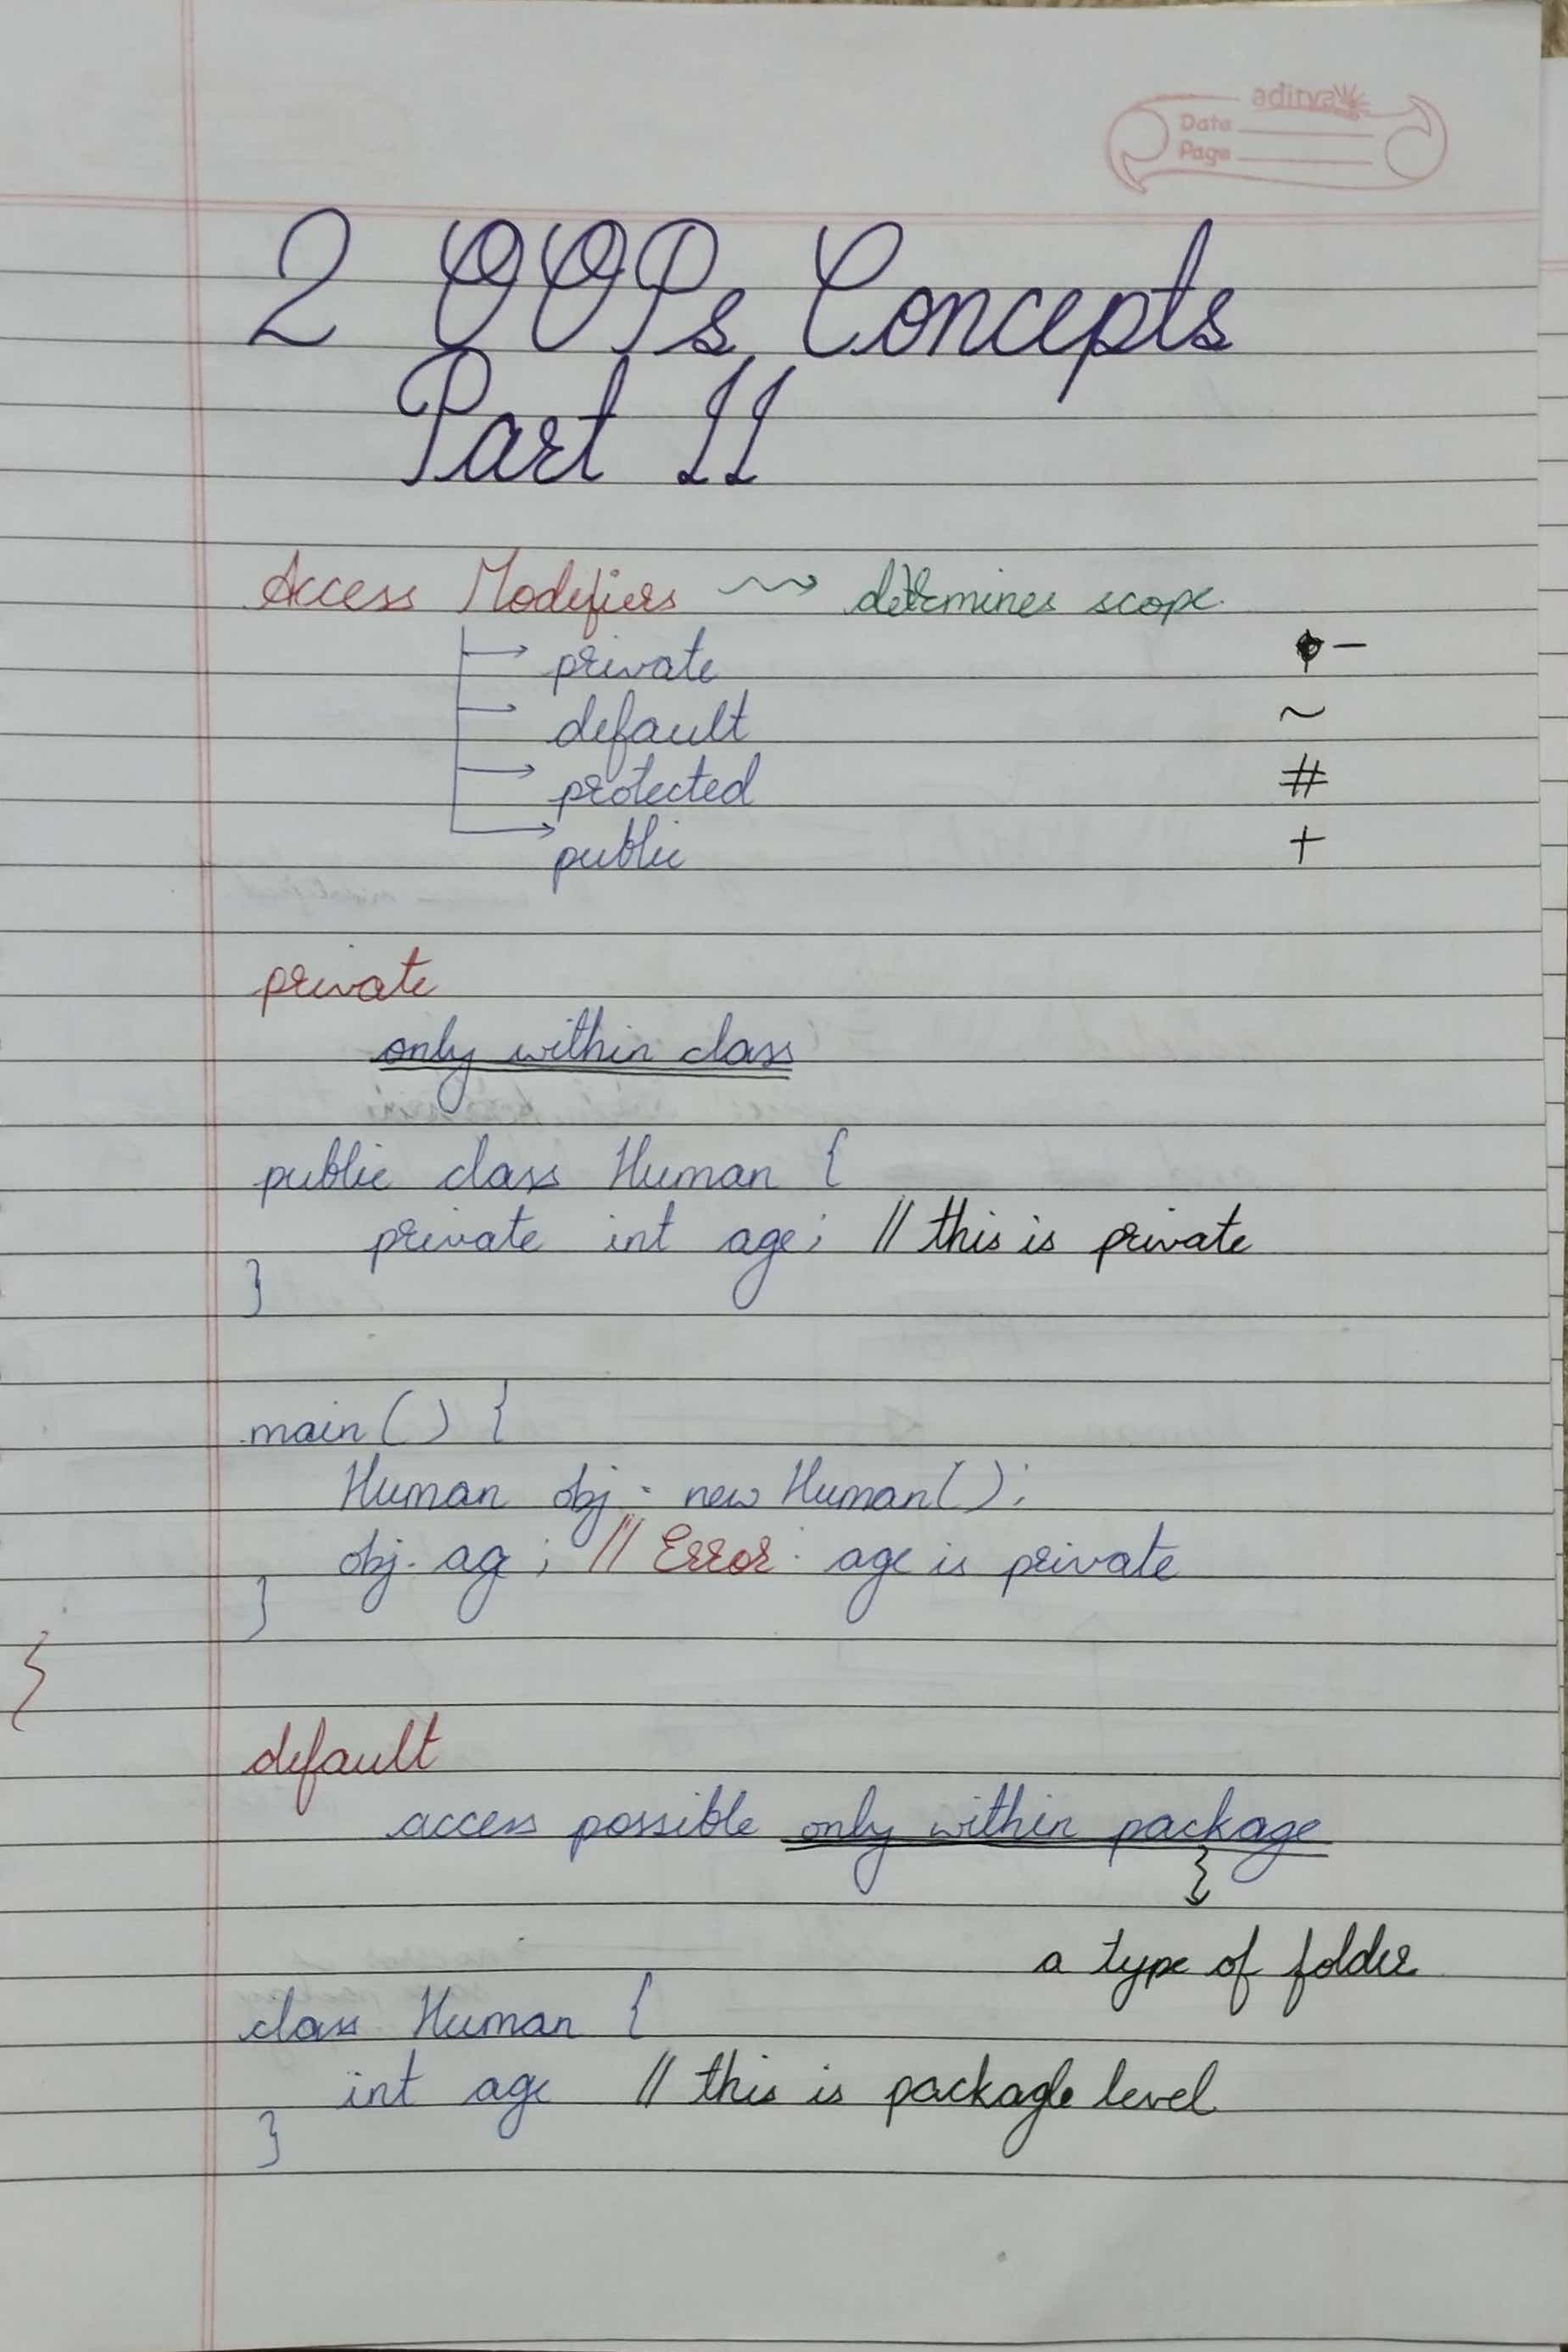 aditya
Date
Page
2 OOPs Concepts
Part II
Access Modifiers ⟿ determines scope
→ private -
→ default ~
→ protected #
→ public +
private
only within class
public class Human {
private int age; // this is private
}
main() {
Human obj = new Human();
obj.ag; // Error: age is private
}
default
access possible only within package
a type of folder
class Human {
int age // this is package level
}